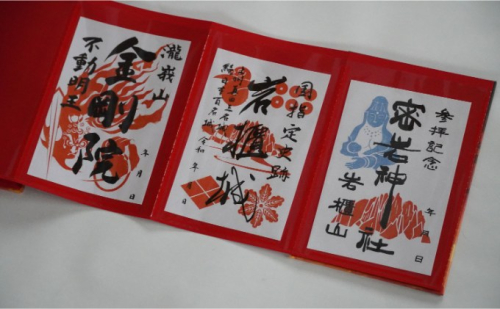 瀧峩山
金剛院
不動明王
年 月 日
国指定史跡
岩櫃城
続日本百名城
令和 年 月 日
参拝記念
密岩神社
岩櫃山
年 月 日